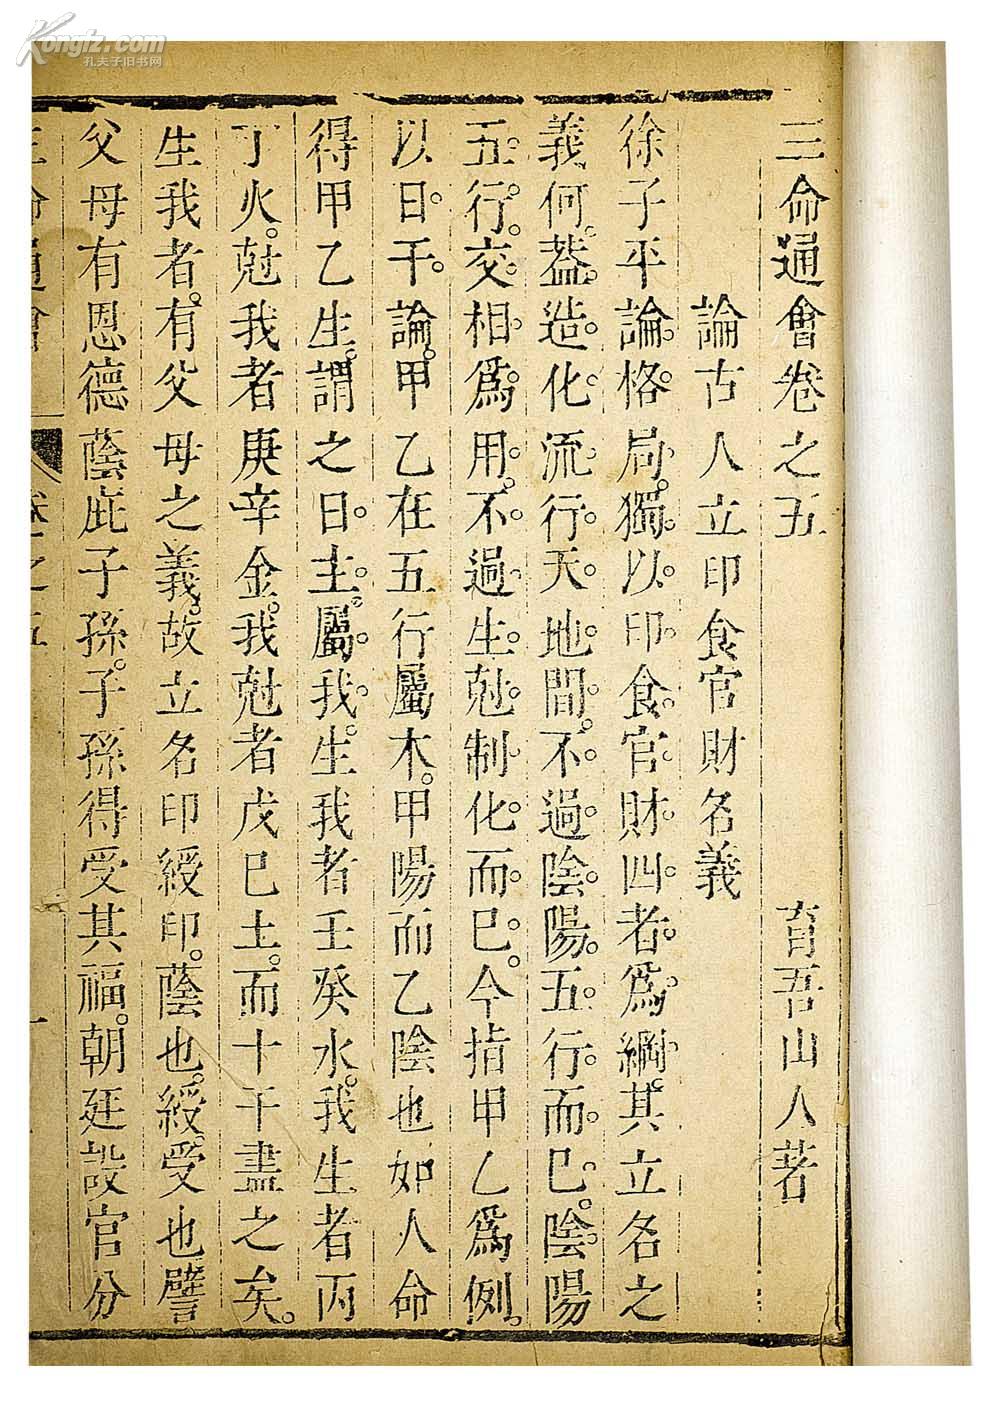 三命通會卷之五　育吾山人著
論古人立印食官財名義
徐子平論格局。獨以印食官財四者。爲綱。其立名之
義何。葢造化流行天地間。不過陰陽五行而已。陰陽
五行。交相爲用。不過生尅制化而已。今指甲乙爲例。
以日干論。甲乙在五行屬木。甲陽而乙陰也如人命
得甲乙生。謂之日主。屬我。生我者壬癸水。我生者丙
丁火。尅我者庚辛金。我尅者戊巳土。而十干盡之矣。
生我者。有父母之義。故立名印綬印。蔭也。綬。受也譬
父母有恩德蔭庇子孫。子孫得受其福。朝廷設官分
三命通會 卷之五 一
Kongfz.com
孔夫子旧书网